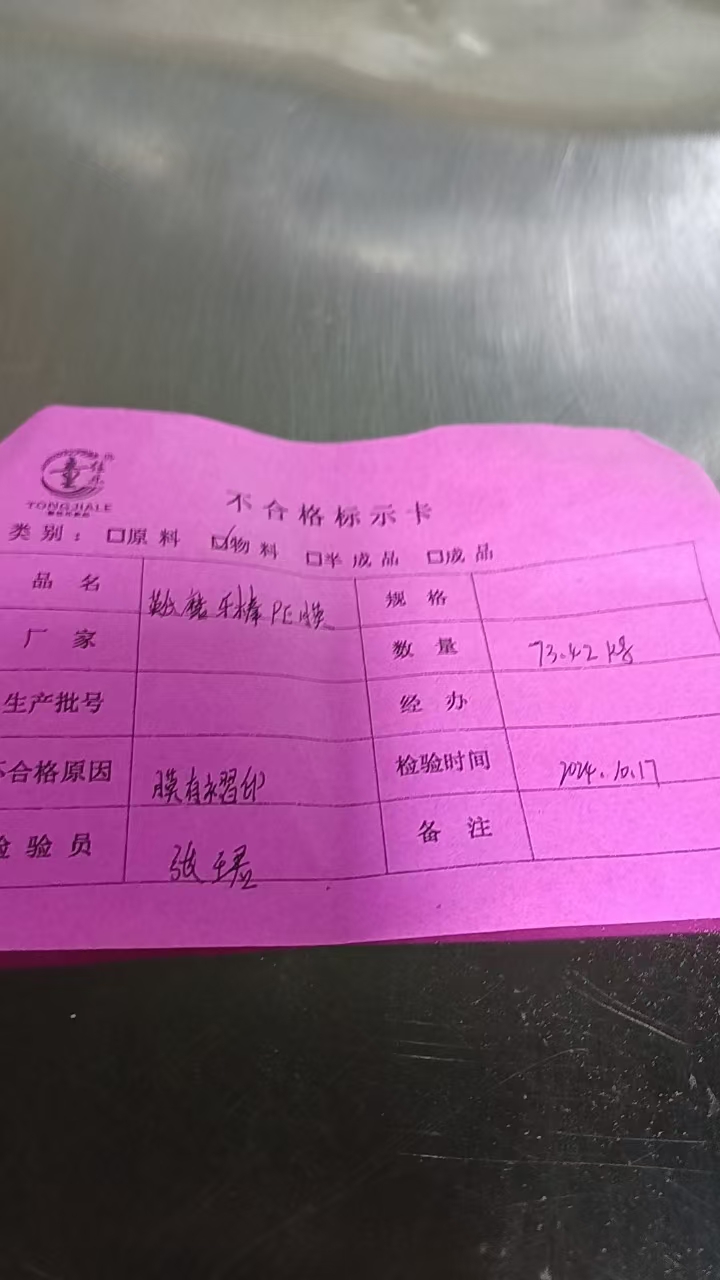 童佳乐
TONGJIALE
不合格标示卡
类别：□原料 ☑物料 □半成品 □成品
品名 棒PE膜 规格
厂家 数量 73.42kg
生产批号 经办
不合格原因 膜有褶印 检验时间 2024.10.17
检验员 张 备注